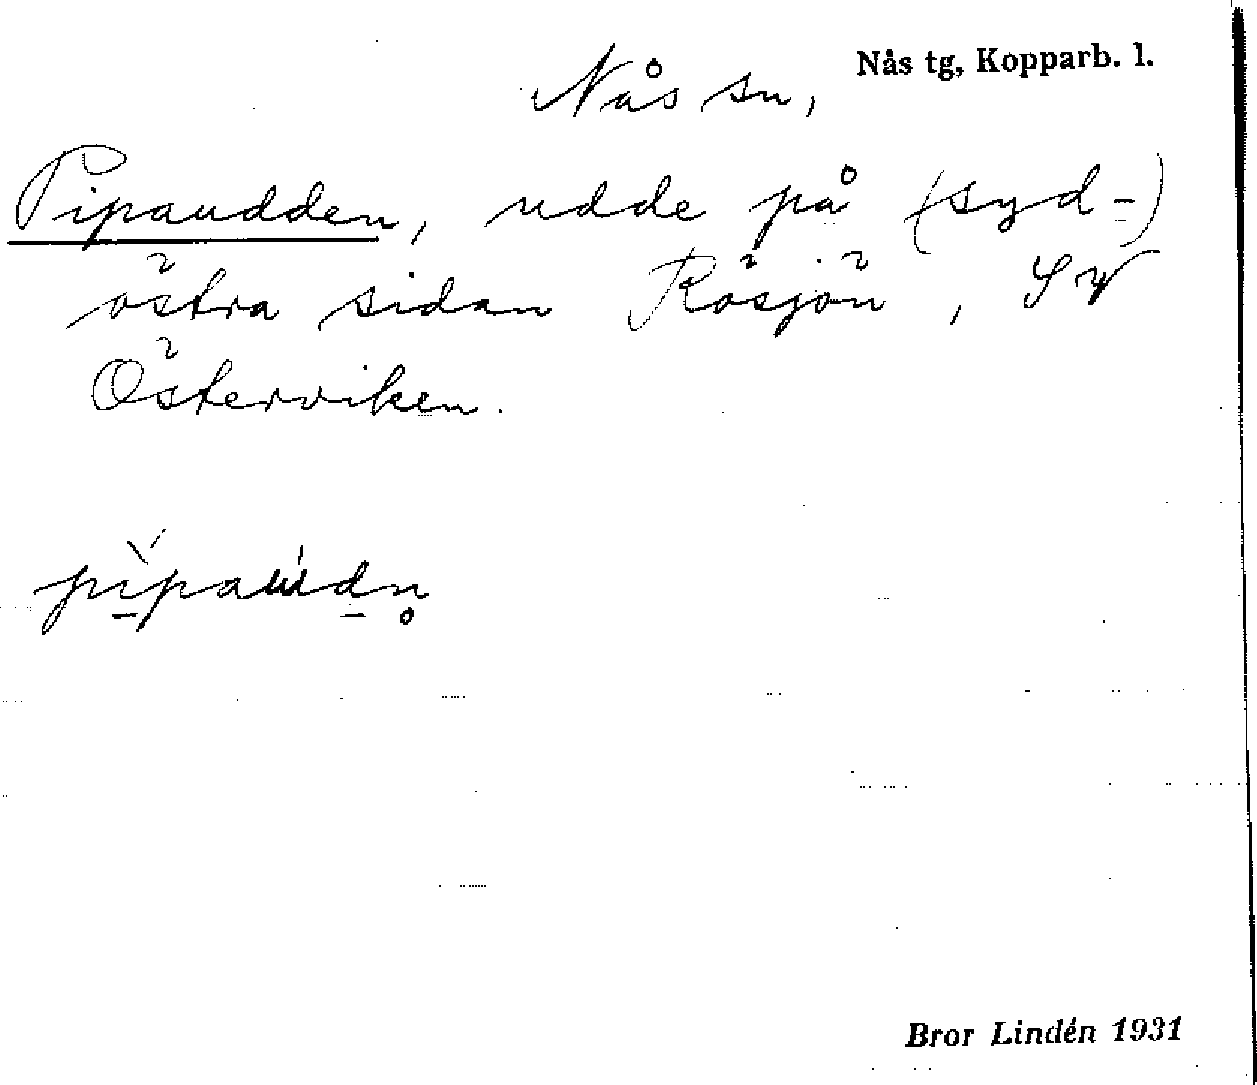 Nås tg, Kopparb. l.
Nås sn,
Pipaudden, udde på (syd-)
östra sidan Rösjön, SV
Österviken.
Bror Lindén 1931